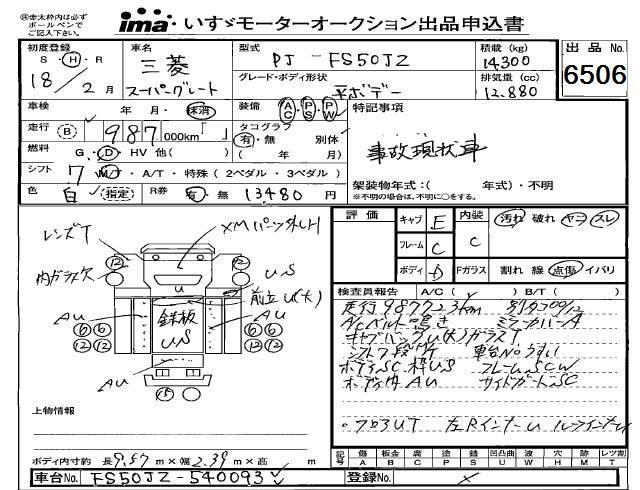 ㊟赤太枠内は必ず
ボールペンで
ご記入下さい。
ima・いすゞモーターオークション出品申込書
初度登録
S・H・R
18/2月
車名
三菱
スーパーグレート
型式
PJ-FS50JZ
グレード・ボディ形状
平ボデー
積載(kg)
14300
排気量(cc)
12.880
出品No.
6506
車検
年 月・抹消
装備 AC・PS・PW
特記事項
事故現状車
走行 (B) 987 000km
タコグラフ 別体
有・無 ( 年 月)
燃料 G・D・HV 他( )
シフト 7 MT・A/T・特殊(2ペダル・3ペダル)
架装物年式:( 年式)・不明
※不明の場合は、不明に○をする。
色 白 (指定) R券 有・無 13480円
レンズT
XMパーツ外LH
内ガラス欠
US
前立U(大)
U
AU
鉄板
US
AU
AU
⑫ ⑫
⑥⑥ ⑥⑥
⑫⑫ ⑫⑫
評価 キャブ E 内装 汚れ 破れ ヤニ スレ
フレーム C C
ボディ D Fガラス 割れ 線 点傷 イパリ
検査員報告 A/C( ) B/T( )
走行987723km
A/Cベルト鳴き ミラーカバーA
キャブバックU(大)ガラスT
シフト7段 車台Noうすい
ボディSC枠US フレームSCW
ボディ内AU サイドガードSC
左RインナーU
上物情報
ボディ内寸約 長9.57m×幅2.39m×高 m
記号 傷A 板金B 腐C 塗P 錆S 凹凸曲U 波W 穴H 跡M レツ割T
車台No. FS50JZ-540093
登録No.